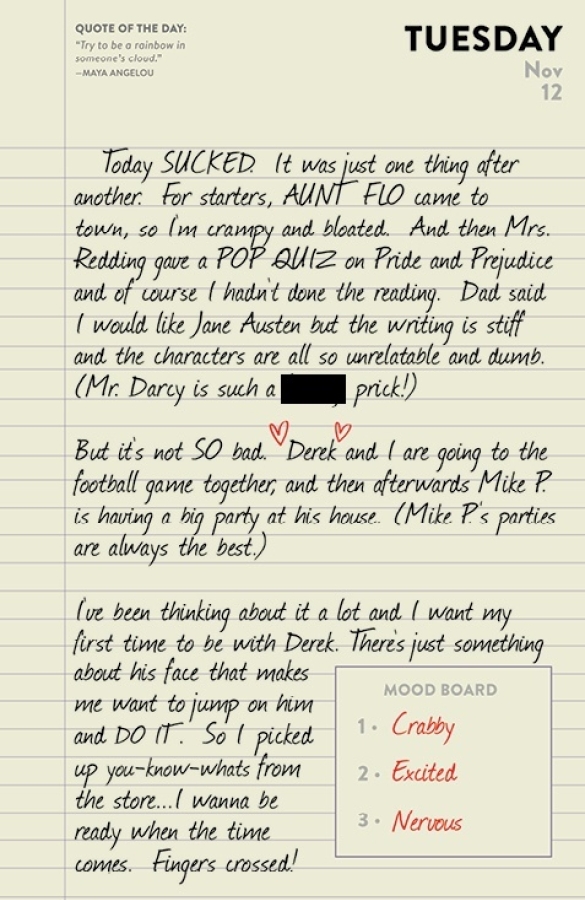 QUOTE OF THE DAY:
"Try to be a rainbow in
someone's cloud."
—MAYA ANGELOU
TUESDAY
Nov
12
Today SUCKED. It was just one thing after
another. For starters, AUNT FLO came to
town, so I'm crampy and bloated. And then Mrs.
Redding gave a POP QUIZ on Pride and Prejudice
and of course I hadn't done the reading. Dad said
I would like Jane Austen but the writing is stiff
and the characters are all so unrelatable and dumb.
(Mr. Darcy is such a prick!)
But it's not SO bad. Derek and I are going to the
football game together, and then afterwards Mike P.
is having a big party at his house. (Mike P.'s parties
are always the best.)
I've been thinking about it a lot and I want my
first time to be with Derek. There's just something
about his face that makes
me want to jump on him
and DO IT. So I picked
up you-know-whats from
the store...I wanna be
ready when the time
comes. Fingers crossed!
MOOD BOARD
1 • Crabby
2 • Excited
3 • Nervous